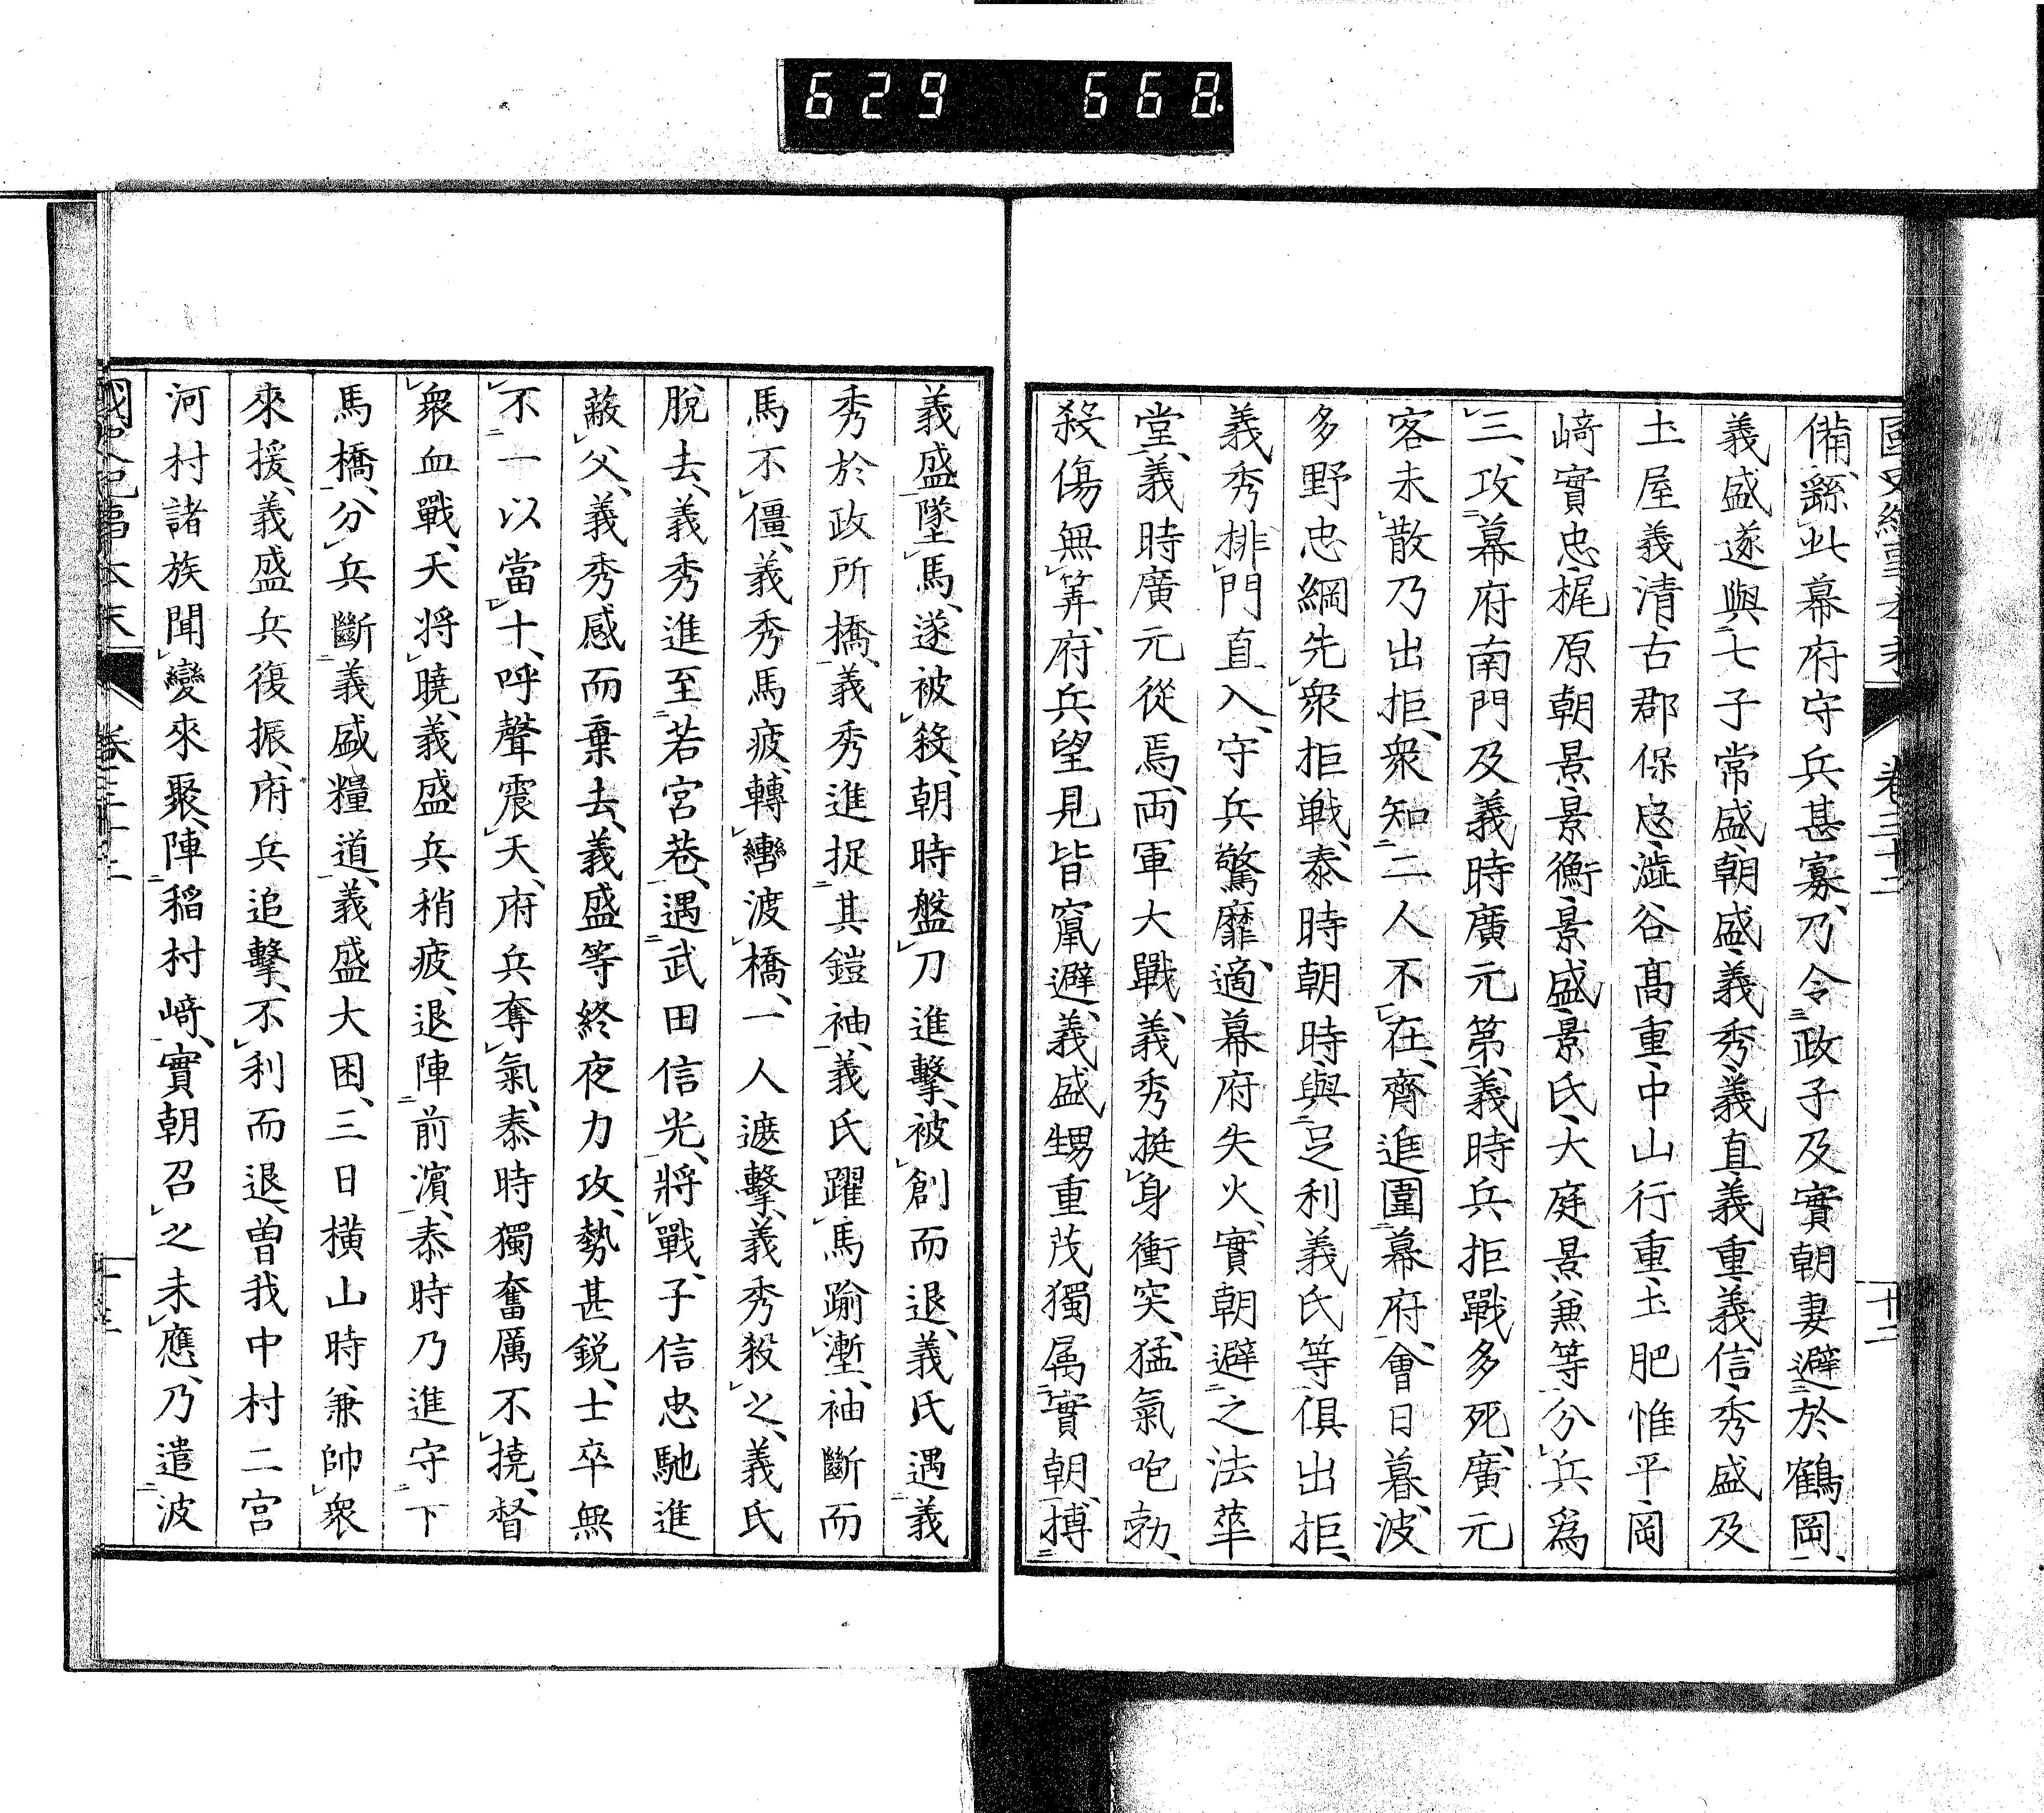 629 668.
備、繇此幕府守兵甚寡、乃令三政子及實朝妻避二於鶴岡一、
義盛遂與二七子常盛朝盛義秀義直義重義信秀盛及
土屋義清古郡保忠澁谷高重中山行重土肥惟平岡
﨑實忠梶原朝景景衡景盛景氏大庭景兼等一分レ兵爲
レ三、攻二幕府南門及義時廣元第一、義時兵拒戰多死、廣元
客未レ散乃出拒、衆知二二人不一レ在、齊進圍二幕府一、會日暮、波
多野忠綱先レ衆拒戦、泰時朝時、與二足利義氏等一俱出拒、
義秀排レ門直入、守兵驚靡、適幕府失火、實朝避二之法華
堂一、義時廣元從焉、兩軍大戰、義秀挺レ身衝突、猛氣咆勃、
殺傷無レ筭、府兵望見皆竄避、義盛甥重茂獨属二實朝一、搏二
義盛一墜レ馬、遂被レ殺、朝時盤レ刀進擊、被レ創而退、義氏遇二義
秀於政所橋一、義秀進捉二其鎧袖一、義氏躍レ馬踰レ塹、袖斷而
馬不レ僵、義秀馬疲、轉レ轡渡レ橋、一人遮擊、義秀殺レ之、義氏
脫去、義秀進至二若宮巷一、遇二武田信光一、將レ戰、子信忠馳進
蔽レ父、義秀感而棄去、義盛等終夜力攻、勢甚銳、士卒無
レ不二一以當一レ十、呼聲震レ天、府兵奪レ氣、泰時獨奮厲不レ撓、督
レ衆血戰、天將レ曉、義盛兵稍疲、退陣二前濱一、泰時乃進守二下
馬橋一、分レ兵斷二義盛糧道一、義盛大困、三日橫山時兼帥レ衆
來援、義盛兵復振、府兵追擊、不レ利而退、曽我中村二宮
河村諸族聞レ變來聚、陣二稻村﨑一、實朝召レ之未レ應、乃遣二波
國史紀事本末 卷三十二